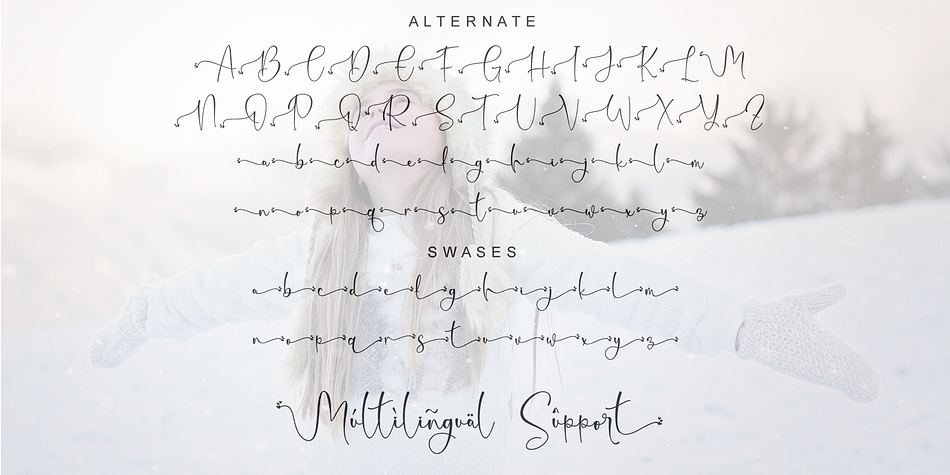 ALTERNATE
A B C D E F G H I J K L M
N O P Q R S T U V W X Y Z
a b c d e f g h i j k l m
n o p q r s t u v w x y z
SWASES
a b c d e f g h i j k l m
n o p q r s t u v w x y z
Múltìlìñguäl Sûpport